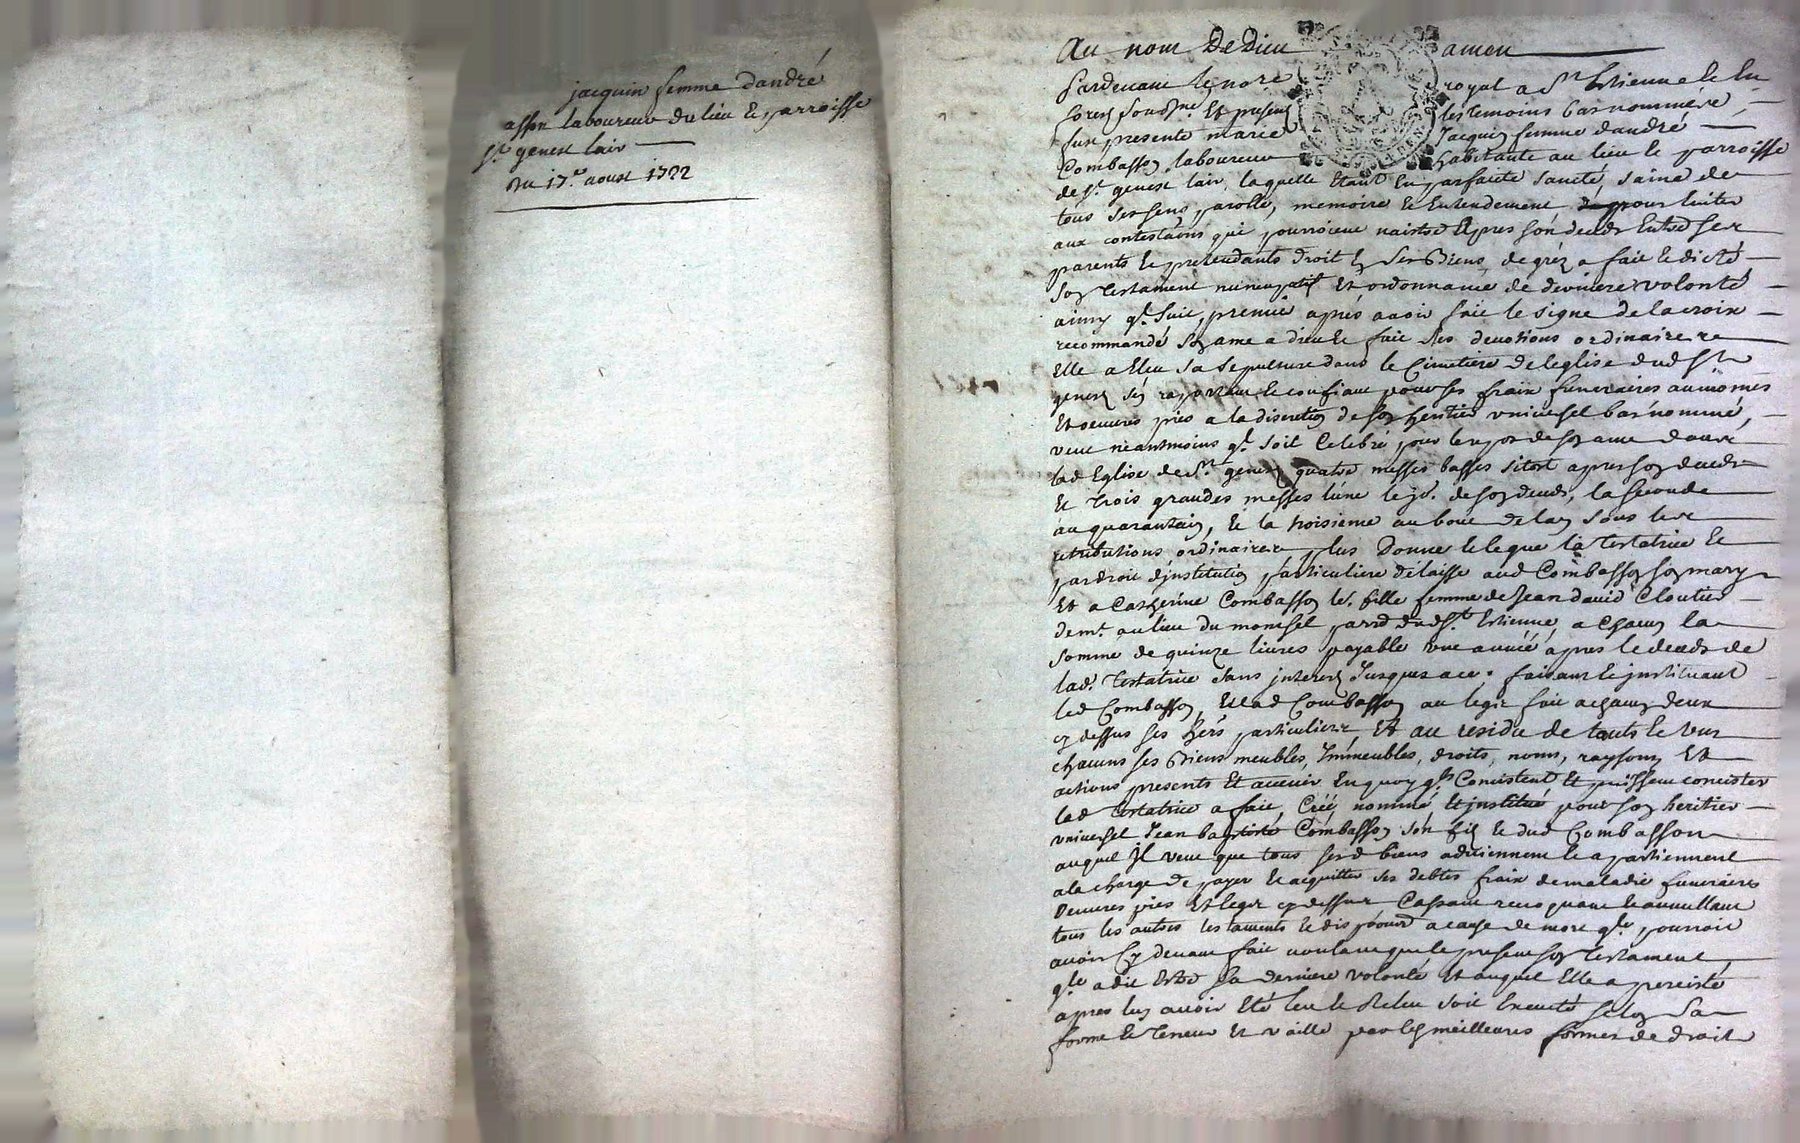 jacquin femme dandré
asson laboureur du lieu & parroisse
st genest lair
du 17e aoust 1722
Au nom De Dieu amen
Pardevant le nore royal a st Estienne le
forest soussne Et present les temoins bas nommés
fust presente marie Jacquin femme dandré
Combasson laboureur habitante au lieu & parroisse
de st genest lair, laquelle Etant En parfaite santé, saine de
tous ses sens, parolle, memoire & Entendement pour Eviter
aux contestaõns qui pourroient naistre apres son deceds Entre ses
parents & pretendants droit En ses Biens, de gré a fait & dicté
son testament nuncupatif Et ordonnance de derniere volonté
ainsy q. suit, premier aprés avoir fait le signe de la croix
recommandé son ame a dieu & fait ses devotions ordinaires
Elle a Eleu sa sepulture dans le Cimetiere de leglise dud st
genest s'en raportant & confiant pour ses fraix funeraires aumônes
Et oeuvres pies a la discretion de son heritier universel bas nommé,
veut neantmoins q. soit Celebré pour le repos de son ame dans
lad Eglise de st genest quatre messes basses sitost apres son deceds
& trois grandes messes lune le jr. de son deceds, la seconde
au quarantain, & la troisieme au bout de lan sous les
retributions ordinaires plus Donne & legue la testatrice &
par droit d'institution particuliere délaisse aud Combasson son mary
Et a Catherine Combasson sa fille femme de Jean david Cloutier
demt. au lieu du monsel parr. dud st Estienne, a chacun la
somme de quinze livres payable une année apres le deceds de
lad. testatrice sans interest Jusques a ce. faisant & instituant
led Combasson, Et lad Combasson au legat fait a chacun deux
cy dessus ses hers particuliers Et au residu de touts & uns
chacuns ses Biens meubles, Immeubles, droits, noms, raysons Et
actions presents Et avenir En quoy qls Consistent Et puissent consister
lad testatrice a fait, Créé, nommé Et institué pour son heritier
universel Jean baptiste Combasson son fils & dud Combasson
auquel Il veut que tous sesd biens adviennent & apartiennent
a la charge de payer & acquitter ses debtes fraix de maladie funeraires
oeuvres pies Et legat cy dessus Cassant revoquant & annullant
tous les autres testaments & dispõons a cause de mort qle pourroit
avoir Cy devant fait voulant que le present son testament,
qle a dit Estre sa derniere volonté Et auquel Elle a percisté
apres luy avoir Eté leu & Releu soit Executé selon sa
forme & teneur Et vaille par les meilleures formes de droit